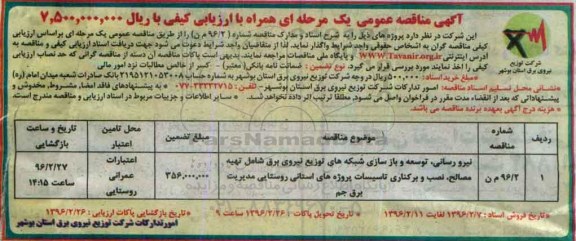 آگهی مناقصه عمومی یک مرحله ای همراه با ارزیابی کیفی با ریال ۷,۵۰۰,۰۰۰,۰۰۰
شرکت توزیع
نیروی برق استان بوشهر
این شرکت در نظر دارد پروژه های ذیل را به شرح اسناد و مدارک مناقصه شماره (۹۶/۲ م ن) را از طریق مناقصه عمومی یک مرحله ای براساس ارزیابی
کیفی مناقصه گران به اشخاص حقوقی واجد شرایط واگذار نماید. لذا از متقاضیان واجد شرایط دعوت می شود جهت دریافت اسناد ارزیابی کیفی و مناقصه به
آدرس اینترنتی www.Tavanir.org.ir و پایگاه ملی مناقصات مراجعه نمایند. بدیهی است پاکات مناقصه آن دسته از مناقصه گرانی که حد نصاب ارزیابی
کیفی را اخذ نمایند مورد بررسی قرار می گیرد. نوع تضمین: ضمانت نامه بانکی (معتبر) - کسر از خالص مطالبات نزد امور مالی
مبلغ خرید اسناد: ۵۰۰,۰۰۰ ریال در وجه شرکت توزیع نیروی برق استان بوشهر به شماره حساب ۲۱۹۵۱۲۱۰۵۲۰۰۸ بانک صادرات شعبه میدان امام (ره)
نشانی محل تسلیم اسناد مناقصه: امور تدارکات شرکت توزیع نیروی برق استان بوشهر - تلفن: ۰۷۷-۳۳۳۲۲۷۱۵ به پیشنهادهای فاقد امضاء، مشروط، مخدوش و
پیشنهاداتی که بعد از انقضاء مدت مقرر در فراخوان واصل می شود، مطلقا ترتیب اثر داده نخواهد شد. سایر اطلاعات و جزئیات مربوط در اسناد ارزیابی و مناقصه مندرج است.
هزینه درج آگهی بعهده برنده مناقصه می باشد.
ردیف | شماره مناقصه | موضوع مناقصه | مبلغ تضمین | محل تامین اعتبار | تاریخ و ساعت بازگشایی
۱ | ۹۶/۲ م ن | نیرو رسانی، توسعه و باز سازی شبکه های توزیع نیروی برق شامل تهیه مصالح، نصب و برکناری تاسیسات پروژه های استانی روستایی مدیریت برق جم | ۳۵۶,۰۰۰,۰۰۰ | اعتبارات عمرانی روستایی | ۹۶/۲/۲۷ ۱۴:۱۵
تاریخ فروش اسناد: ۱۳۹۶/۲/۷ لغایت ۱۳۹۶/۲/۱۱ تاریخ تحویل پاکات: ۱۳۹۶/۲/۲۶ ساعت ۹ تاریخ بازگشایی پاکات ارزیابی: ۱۳۹۶/۲/۲۶
امور تدارکات شرکت توزیع نیروی برق استان بوشهر